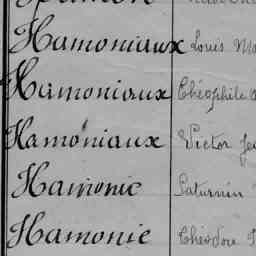 Hamoniaux Louis
Hamoniaux Théophile
Hamoniaux Victor
Hamonic Saturnin
Hamonic Théodore